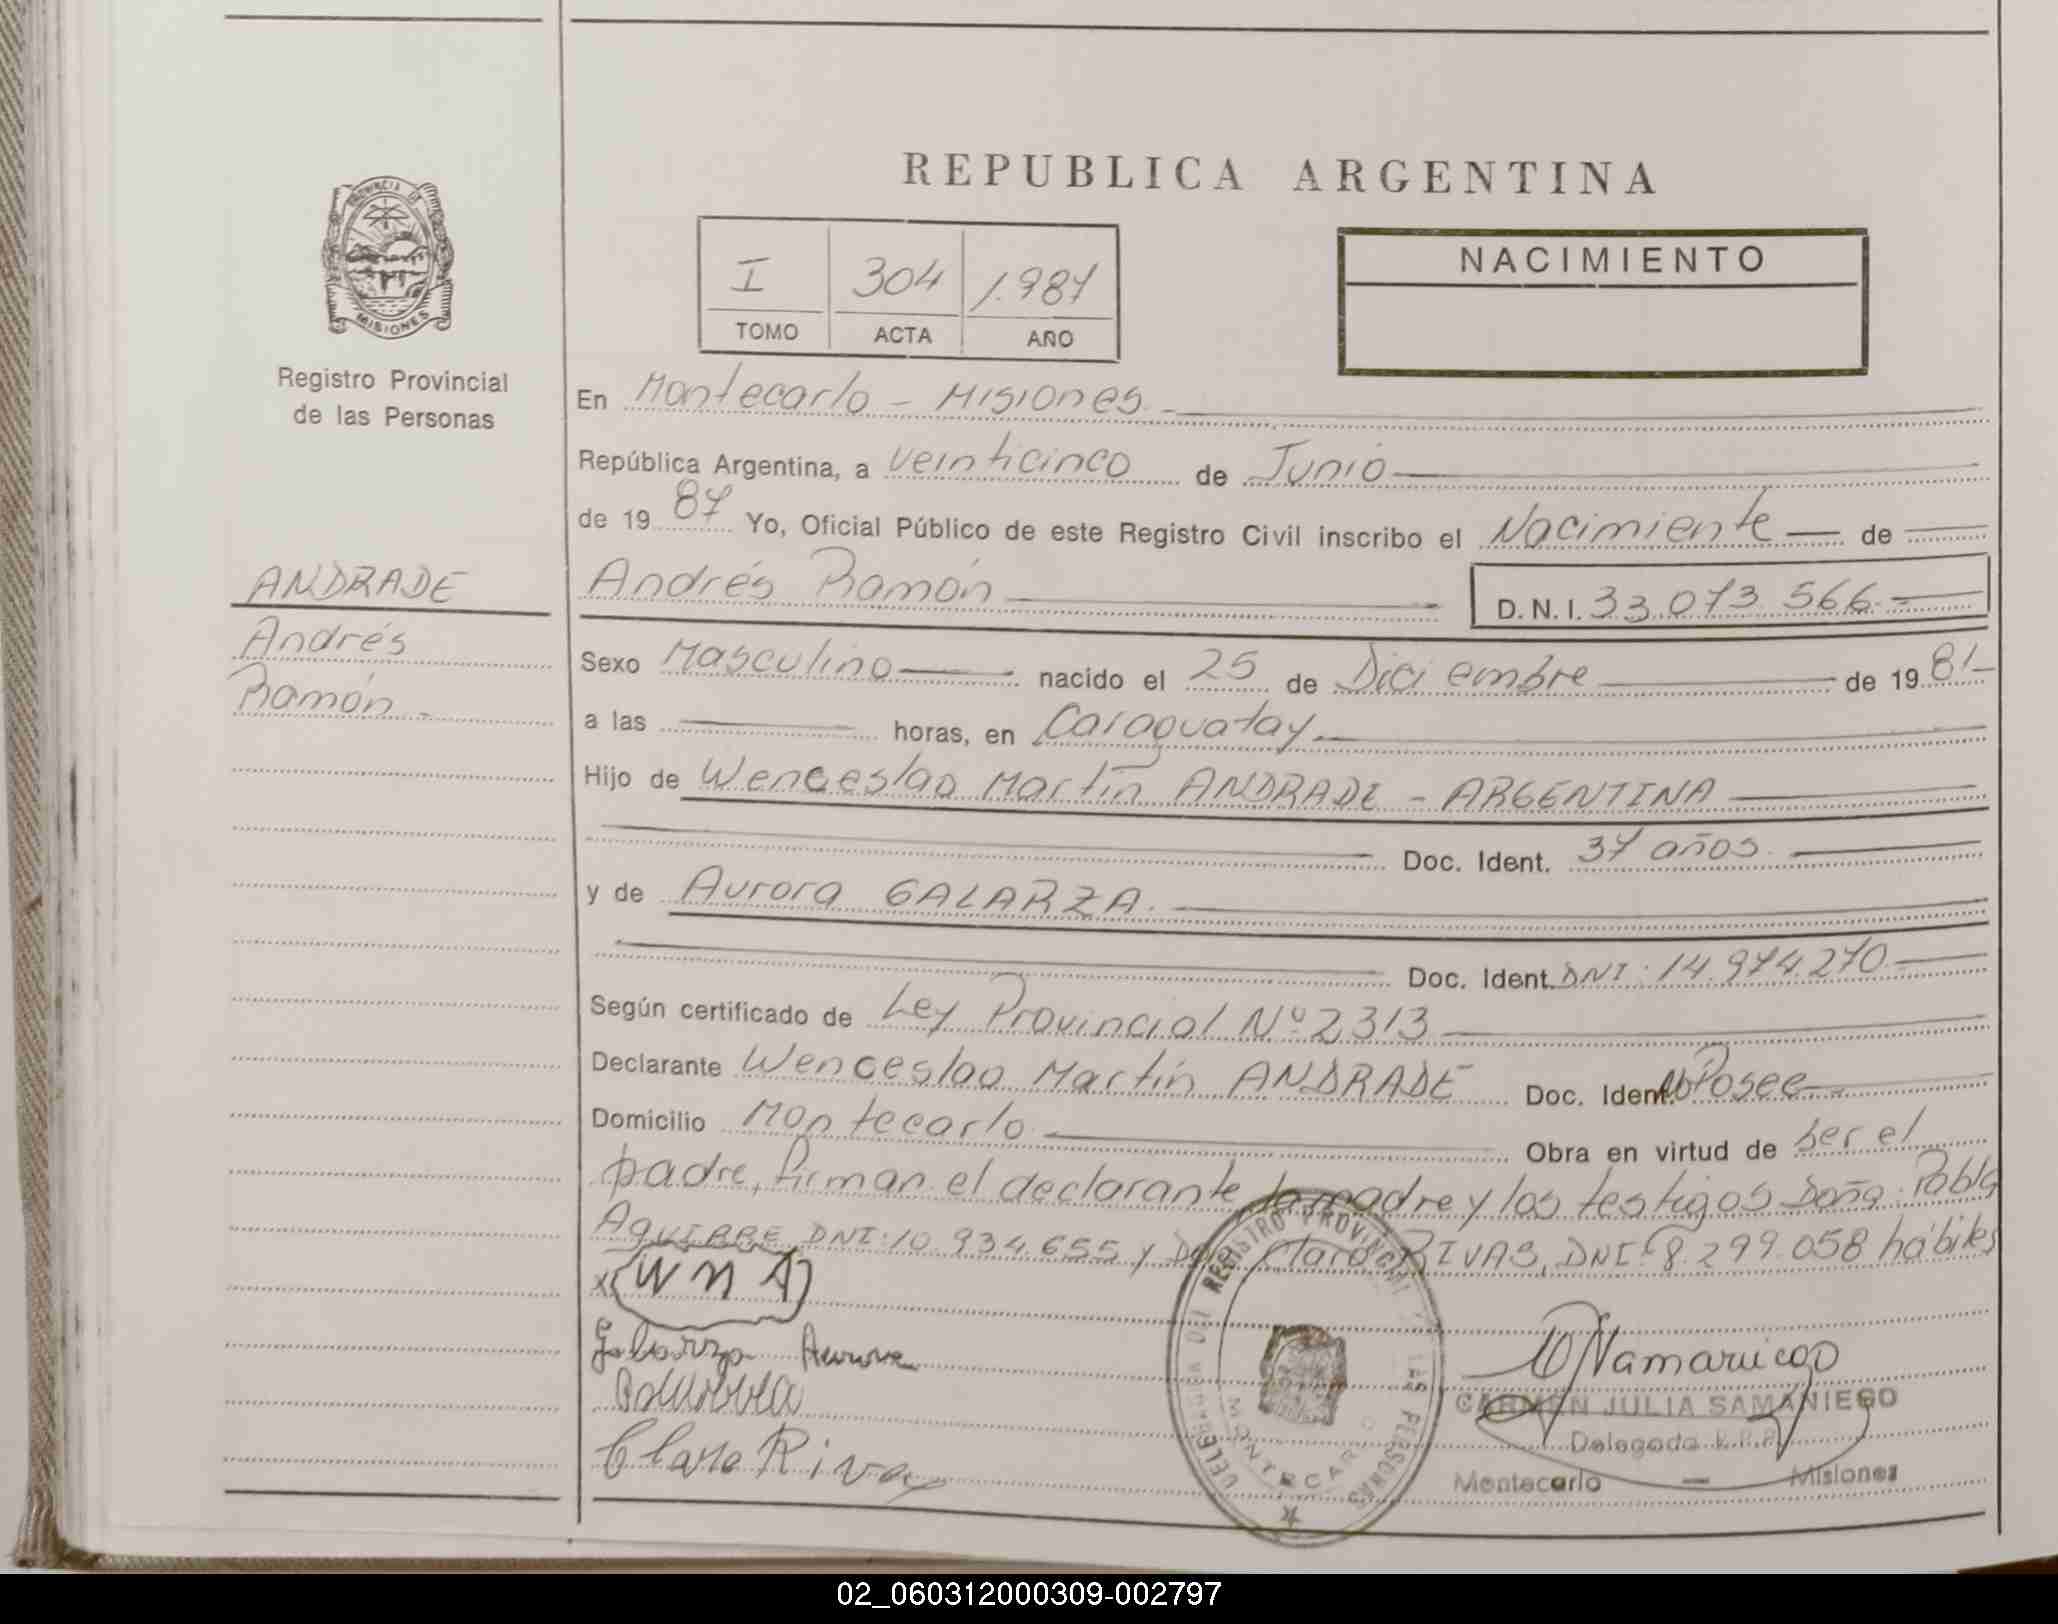 REPUBLICA ARGENTINA
PROVINCIA DE
MISIONES
Registro Provincial
de las Personas
I 304 1.987
TOMO ACTA AÑO
NACIMIENTO
En Montecarlo - Misiones.
República Argentina, a veinticinco de Junio
de 19 87 Yo, Oficial Público de este Registro Civil inscribo el Nacimiente de
ANDRADE
Andrés
Ramón.
Andrés Ramón D.N.I. 33.073.566.-
Sexo Masculino nacido el 25 de Diciembre de 19 81-
a las horas, en Caraguatay.
Hijo de Wenceslao Martín ANDRADE - ARGENTINA
Doc. Ident. 37 años.
y de Aurora GALARZA.
Doc. Ident. DNI: 14.974.270.
Según certificado de Ley Provincial Nº 2313
Declarante Wenceslao Martín ANDRADE Doc. Ident. No Posee.
Domicilio Montecarlo. Obra en virtud de ser el
padre, firman el declarante, la madre y los testigos Doña: Pabla
AGUIRRE, DNI: 10.934.655 y Claro RIVAS, DNI: 8.299.058 hábiles
x WMA
Galarza Aurora
Claro Rivas
REGISTRO PROVINCIAL LAS PERSONAS
MONTECARLO
CARMEN JULIA SAMANIEGO
Delegada R.P.P.
Montecarlo — Misiones
02_060312000309-002797